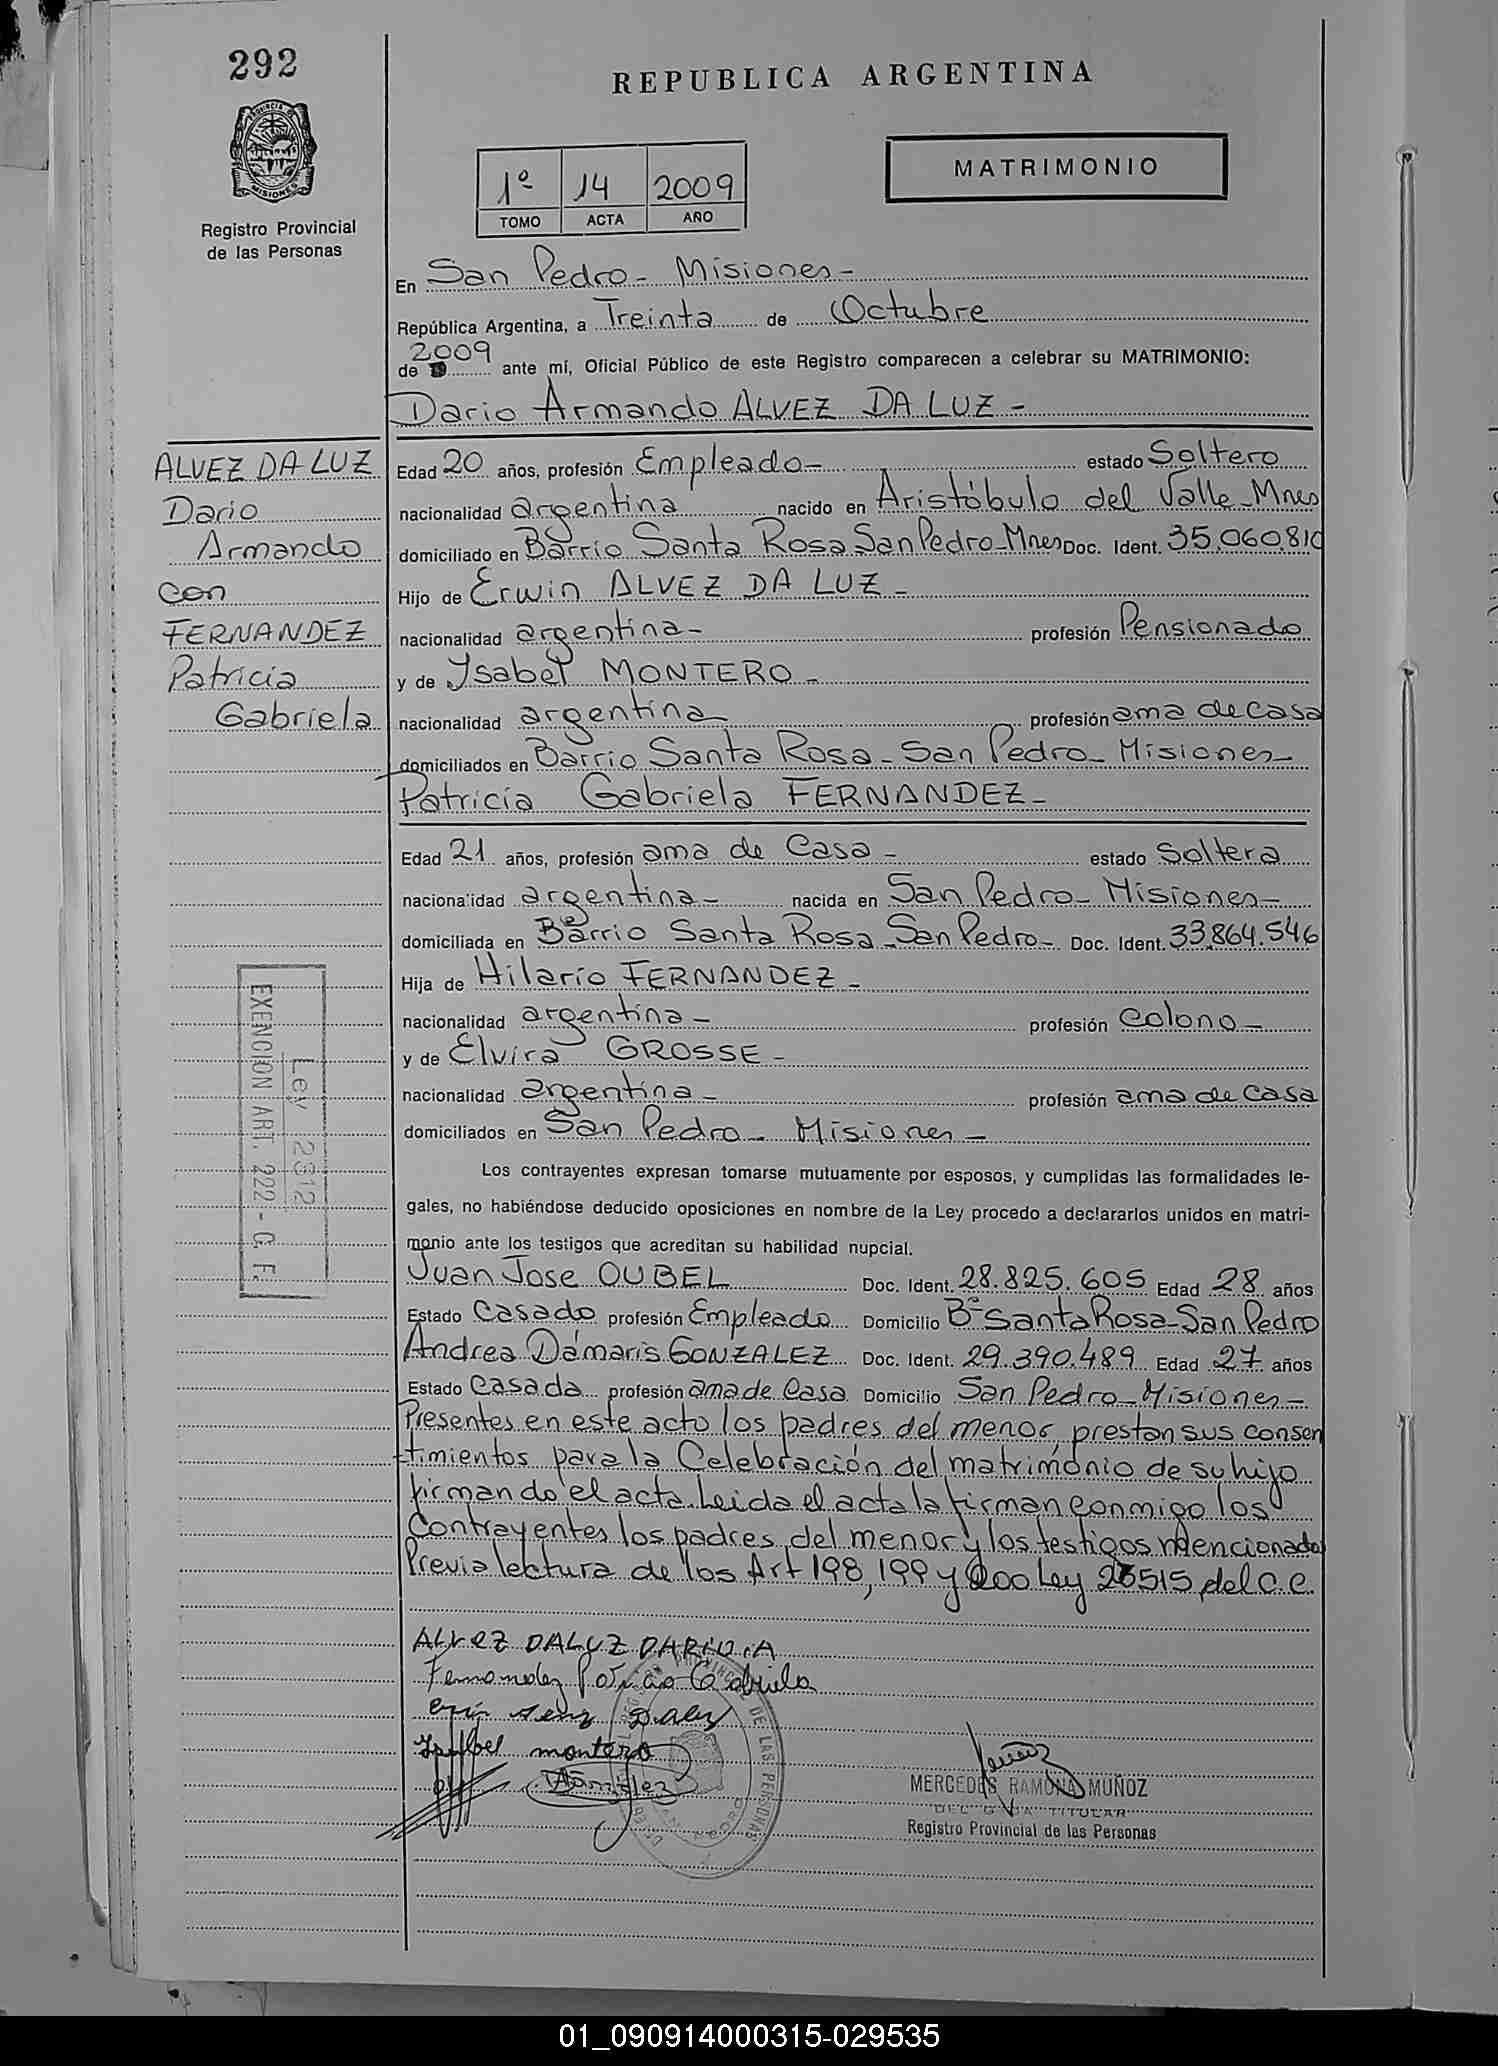 292
REPUBLICA ARGENTINA
MISIONES
Registro Provincial
de las Personas
1º 14 2009
TOMO ACTA AÑO
MATRIMONIO
En San Pedro - Misiones -
República Argentina, a Treinta de Octubre
de 2009 ante mí, Oficial Público de este Registro comparecen a celebrar su MATRIMONIO:
Dario Armando ALVEZ DA LUZ -
ALVEZ DA LUZ
Dario
Armando
con
FERNANDEZ
Patricia
Gabriela
Edad 20 años, profesión Empleado - estado Soltero
nacionalidad argentina nacido en Aristóbulo del Valle - Mnes
domiciliado en Barrio Santa Rosa San Pedro - Mnes Doc. Ident. 35.060.810
Hijo de Erwin ALVEZ DA LUZ -
nacionalidad argentina - profesión Pensionado
y de Ysabel MONTERO -
nacionalidad argentina profesión ama de casa
domiciliados en Barrio Santa Rosa - San Pedro - Misiones -
Patricia Gabriela FERNANDEZ -
Edad 21 años, profesión ama de Casa - estado Soltera
nacionalidad argentina - nacida en San Pedro - Misiones -
domiciliada en Barrio Santa Rosa - San Pedro - Doc. Ident. 33.864.546
Hija de Hilario FERNANDEZ -
nacionalidad argentina - profesión Colono -
y de Elvira GROSSE -
nacionalidad argentina - profesión ama de casa
domiciliados en San Pedro - Misiones -
Ley 2312
EXENCION ART. 222 - C. F.
Los contrayentes expresan tomarse mutuamente por esposos, y cumplidas las formalidades le-
gales, no habiéndose deducido oposiciones en nombre de la Ley procedo a declararlos unidos en matri-
monio ante los testigos que acreditan su habilidad nupcial.
Juan Jose OUBEL Doc. Ident. 28.825.605 Edad 28 años
Estado Casado profesión Empleado Domicilio Bº Santa Rosa - San Pedro
Andrea Dámaris GONZALEZ Doc. Ident. 29.390.489 Edad 27 años
Estado Casada profesión ama de Casa Domicilio San Pedro - Misiones -
Presentes en este acto los padres del menor, prestan sus consen
timientos para la Celebración del matrimonio de su hijo
firmando el acta. Leida el acta la firman conmigo los
Contrayentes los padres del menor y los testigos mencionados
Previa lectura de los Art 198, 199 y 200 Ley 23515 del C.C.
ALVEZ DALUZ DARIO.A
Fernandez Patricia Gabriela
Ysabel montero
MERCEDES RAMONA MUÑOZ
DELEGADA TITULAR
Registro Provincial de las Personas
01_090914000315-029535